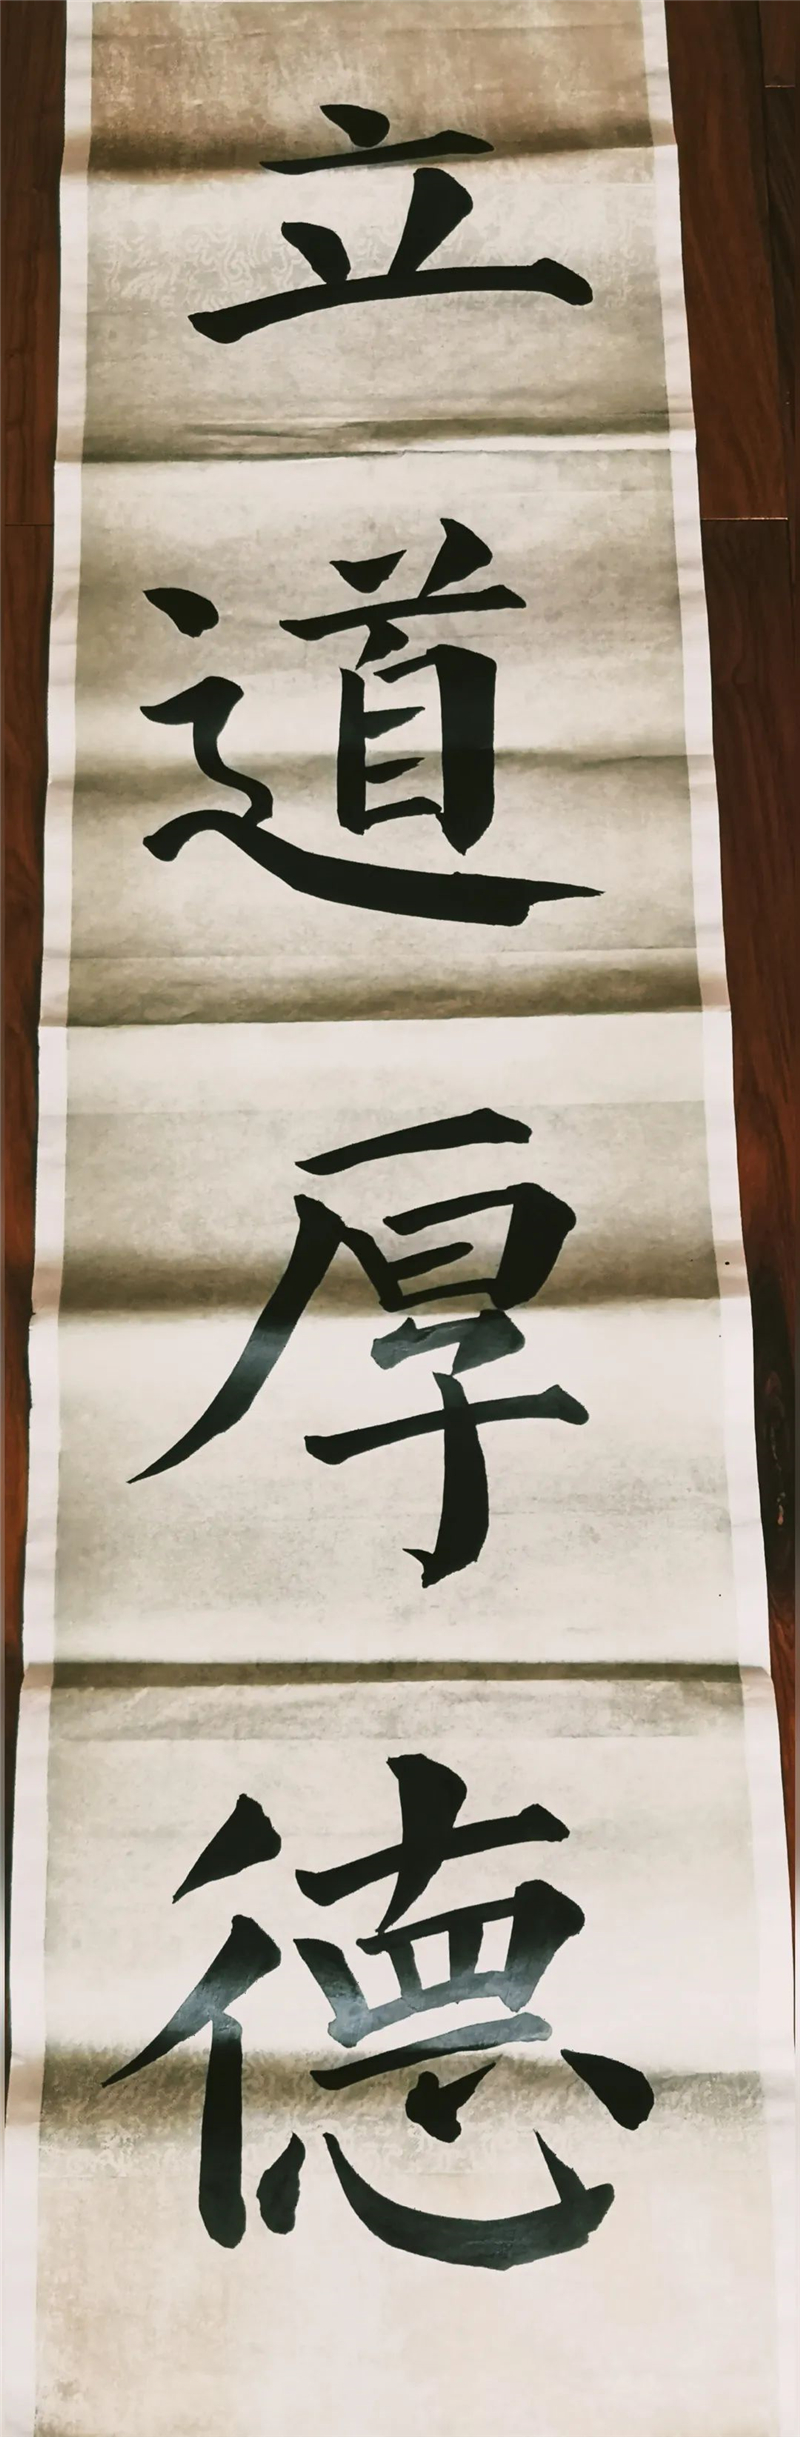 立道厚德